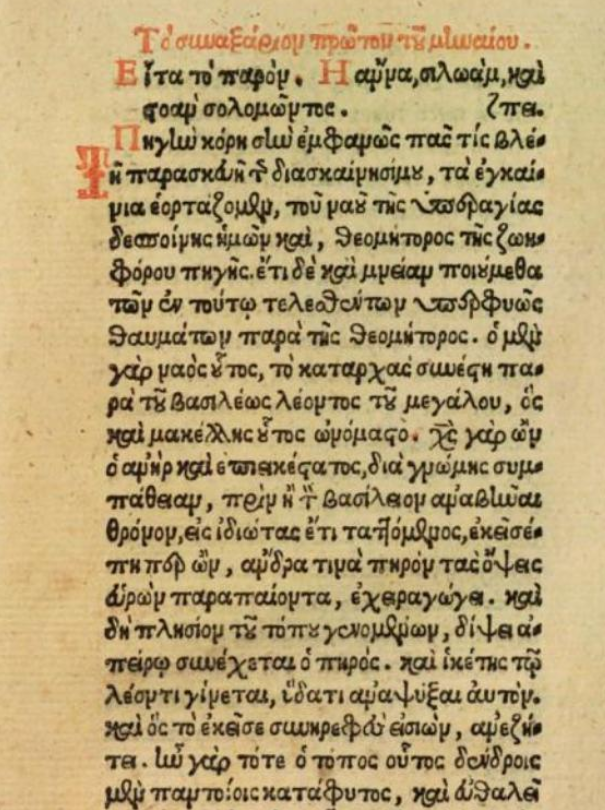 Τὸ σιναξάριον πρῶτον τοῦ μιναίου.
Εἶτα τὸ παρόν. Ἢ ἄμνα, σιλωὰμ, καὶ
στοὰν σολομῶντος. ζπει.
Πηγὴν κόρη σὴν ἐμφανῶς πᾶς τίς βλέ-
Τῇ παρασκευῇ τῆς διακαινησίμου, τὰ ἐγκαί-
νια ἑορτάζομεν, τοῦ ναοῦ τῆς ὑπεραγίας
δεσποίνης ἡμῶν καὶ, θεομήτορος τῆς ζωη-
φόρου πηγῆς. ἔτι δὲ καὶ μνείαν ποιούμεθα
τῶν ἐν τούτῳ τελεσθέντων ὑπερφυῶς
θαυμάτων παρὰ τῆς θεομήτορος. ὁ μὲν
γὰρ ναὸς οὗτος, τὸ καταρχὰς συνέστη πα-
ρὰ τοῦ βασιλέως λέοντος τοῦ μεγάλου, ὃς
καὶ μακέλλης οὗτος ὠνόμαστο. χς γὰρ ὢν
ὁ ἀνὴρ καὶ ἐπιεικέστατος, διὰ γνώμης συμ-
πάθειαν, πρὶν ἢ τὸν βασίλειον ἀναβῆναι
θρόνον, εἰς ἰδιώτας ἔτι ταττόμενος, ἐκεῖσέ-
πη περιὼν, ἄνδρα τινὰ πηρὸν τὰς ὄψεις
εὑρὼν παραπαίοντα, ἐχειραγώγει. καὶ
δὴ πλησίον τοῦ τόπου γενομένων, δίψει ἀ-
πείρῳ συνέχεται ὁ πηρός. καὶ ἱκέτης τῷ
λέοντι γίνεται, ὕδατι ἀναψύξαι αὐτόν.
καὶ ὃς τὸ ἐκεῖσε συνηρεφὲς εἰσιὼν, ἀνεζή-
τει. ἦν γὰρ τότε ὁ τόπος οὗτος δένδροις
μὲν παντοίοις κατάφυτος, καὶ εὐθαλεῖ